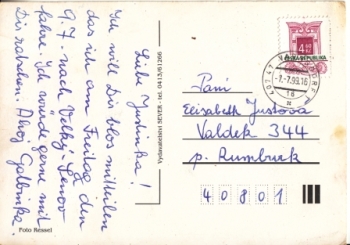 Liebe Justinka!
Ich will Dir blos mitteilen
das ich am Freitag den
9.7. nach Velký-Šenov
fahre. Ich würde gerne mit
Dir ratschen. Ahoj Gabinka.
Foto Ressel
Vydavatelství SEVER - tel. 0413/61266
Paní
Elisabeth Justová
Valdek 344
p. Rumburk
40801
4
-7.-7.99.16